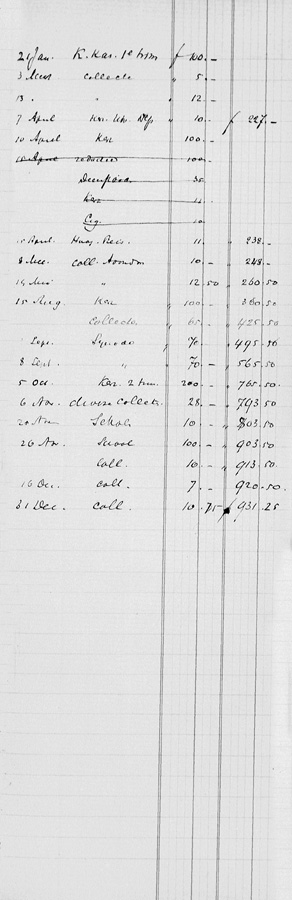 21 Jan. K. Kas. 1e trm f 100.-
3 Mrt collecte " 5.-
13 " " " 12.-
7 April " 10.- f 227.-
10 April Ker 100.-
10 April 100.-
35
Ker
Cig. 10
10 April. Haag. Reis. 11 " 238.-
8 Mei. coll. 10.- " 248.-
14 Mei " 12.50 " 260.50
15 Aug. Ker " 100.- " 360.50
Collecte " 65.- " 425.50
Sept. Synode " 70.- " 495.50
8 Sept. " " 70.- " 565.50
5 Oct. Ker. 2 trm. 200.- " 765.50
6 Nov. diverse collecte. 28.- " 793.50
20 Nov School 10.- " 803.50
26 Nov. School 100.- " 903.50
Coll. 10.- " 913.50
16 Dec. coll. 7.- " 920.50.
31 Dec. coll. 10.75 f 931.25